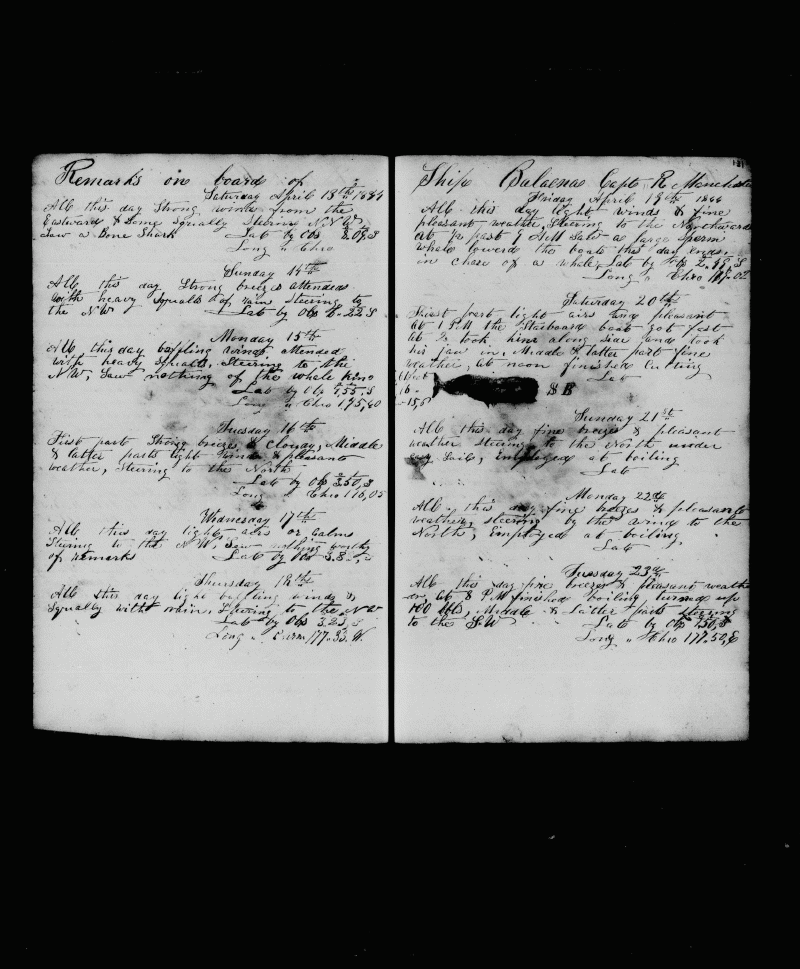 Remarks on board of
Saturday April 13th 1844
All this day Strong winds from the
Eastward & Some Squally Steering N.N.W.
Saw a Bone Shark Lat by Obs 8.09,S
Long " Chro
Sunday 14th
All this day Strong breezes attended
with heavy Squalls of rain Steering to
the N W Lat by Obs 6.22 S
Monday 15th
All this day baffling winds attended
with heavy Squalls, Steering to the
N W, Saw nothing of the whale kind
Lat by Obs ,55,S
Long " Chro 175,40
Tuesday 16th
First part Strong breezes & Cloudy, Middle
& latter parts light winds & pleasant
weather, Steering to the North
Lat by Obs 3.50,S
Long " Chro 176,05
Wednesday 17th
All this day light airs or Calms
Steering to the N.W, Saw nothing worthy
of remarks Lat by Obs
Thursday 18th
All this day light baffling winds &
Squally with rain, Steering to the N W
Lat by Obs 3.23,S
Long " Lunr 177.33.W.
Ship Balaena Capt R Manchester
Friday April 19th 1844
All this day light winds & fine
pleasant weather, Steering to the Northward
at past 9 AM Saw a large Sperm
whale lowerd the boats this day Ends
in chase of a whale, Lat by Obs 2.45,S
Long " Chro 177.02
Saturday 20th
First part light airs and pleasant
At 1 P.M the Starboard boat got fast
At 2 took him along side and took
his Jaw in, Middle & latter part fine
weather, At noon finished Cutting
Lat
S B
Sunday 21st
All this day fine breezes & pleasant
weather Steering to the North under
easy Sail, Employed at boiling
Lat
Monday 22d
All this day fine breezes & pleasant
weather, steering by the wind to the
North, Employed at boiling,
Lat
Tuesday 23d
All this day fine breezes & pleasant weath
er, At 8 P.M finished boiling turned up
100 bbls, Middle & Latter parts steering
to the S.W Lat by Obs 50,S
Long " Chro 177.50,E